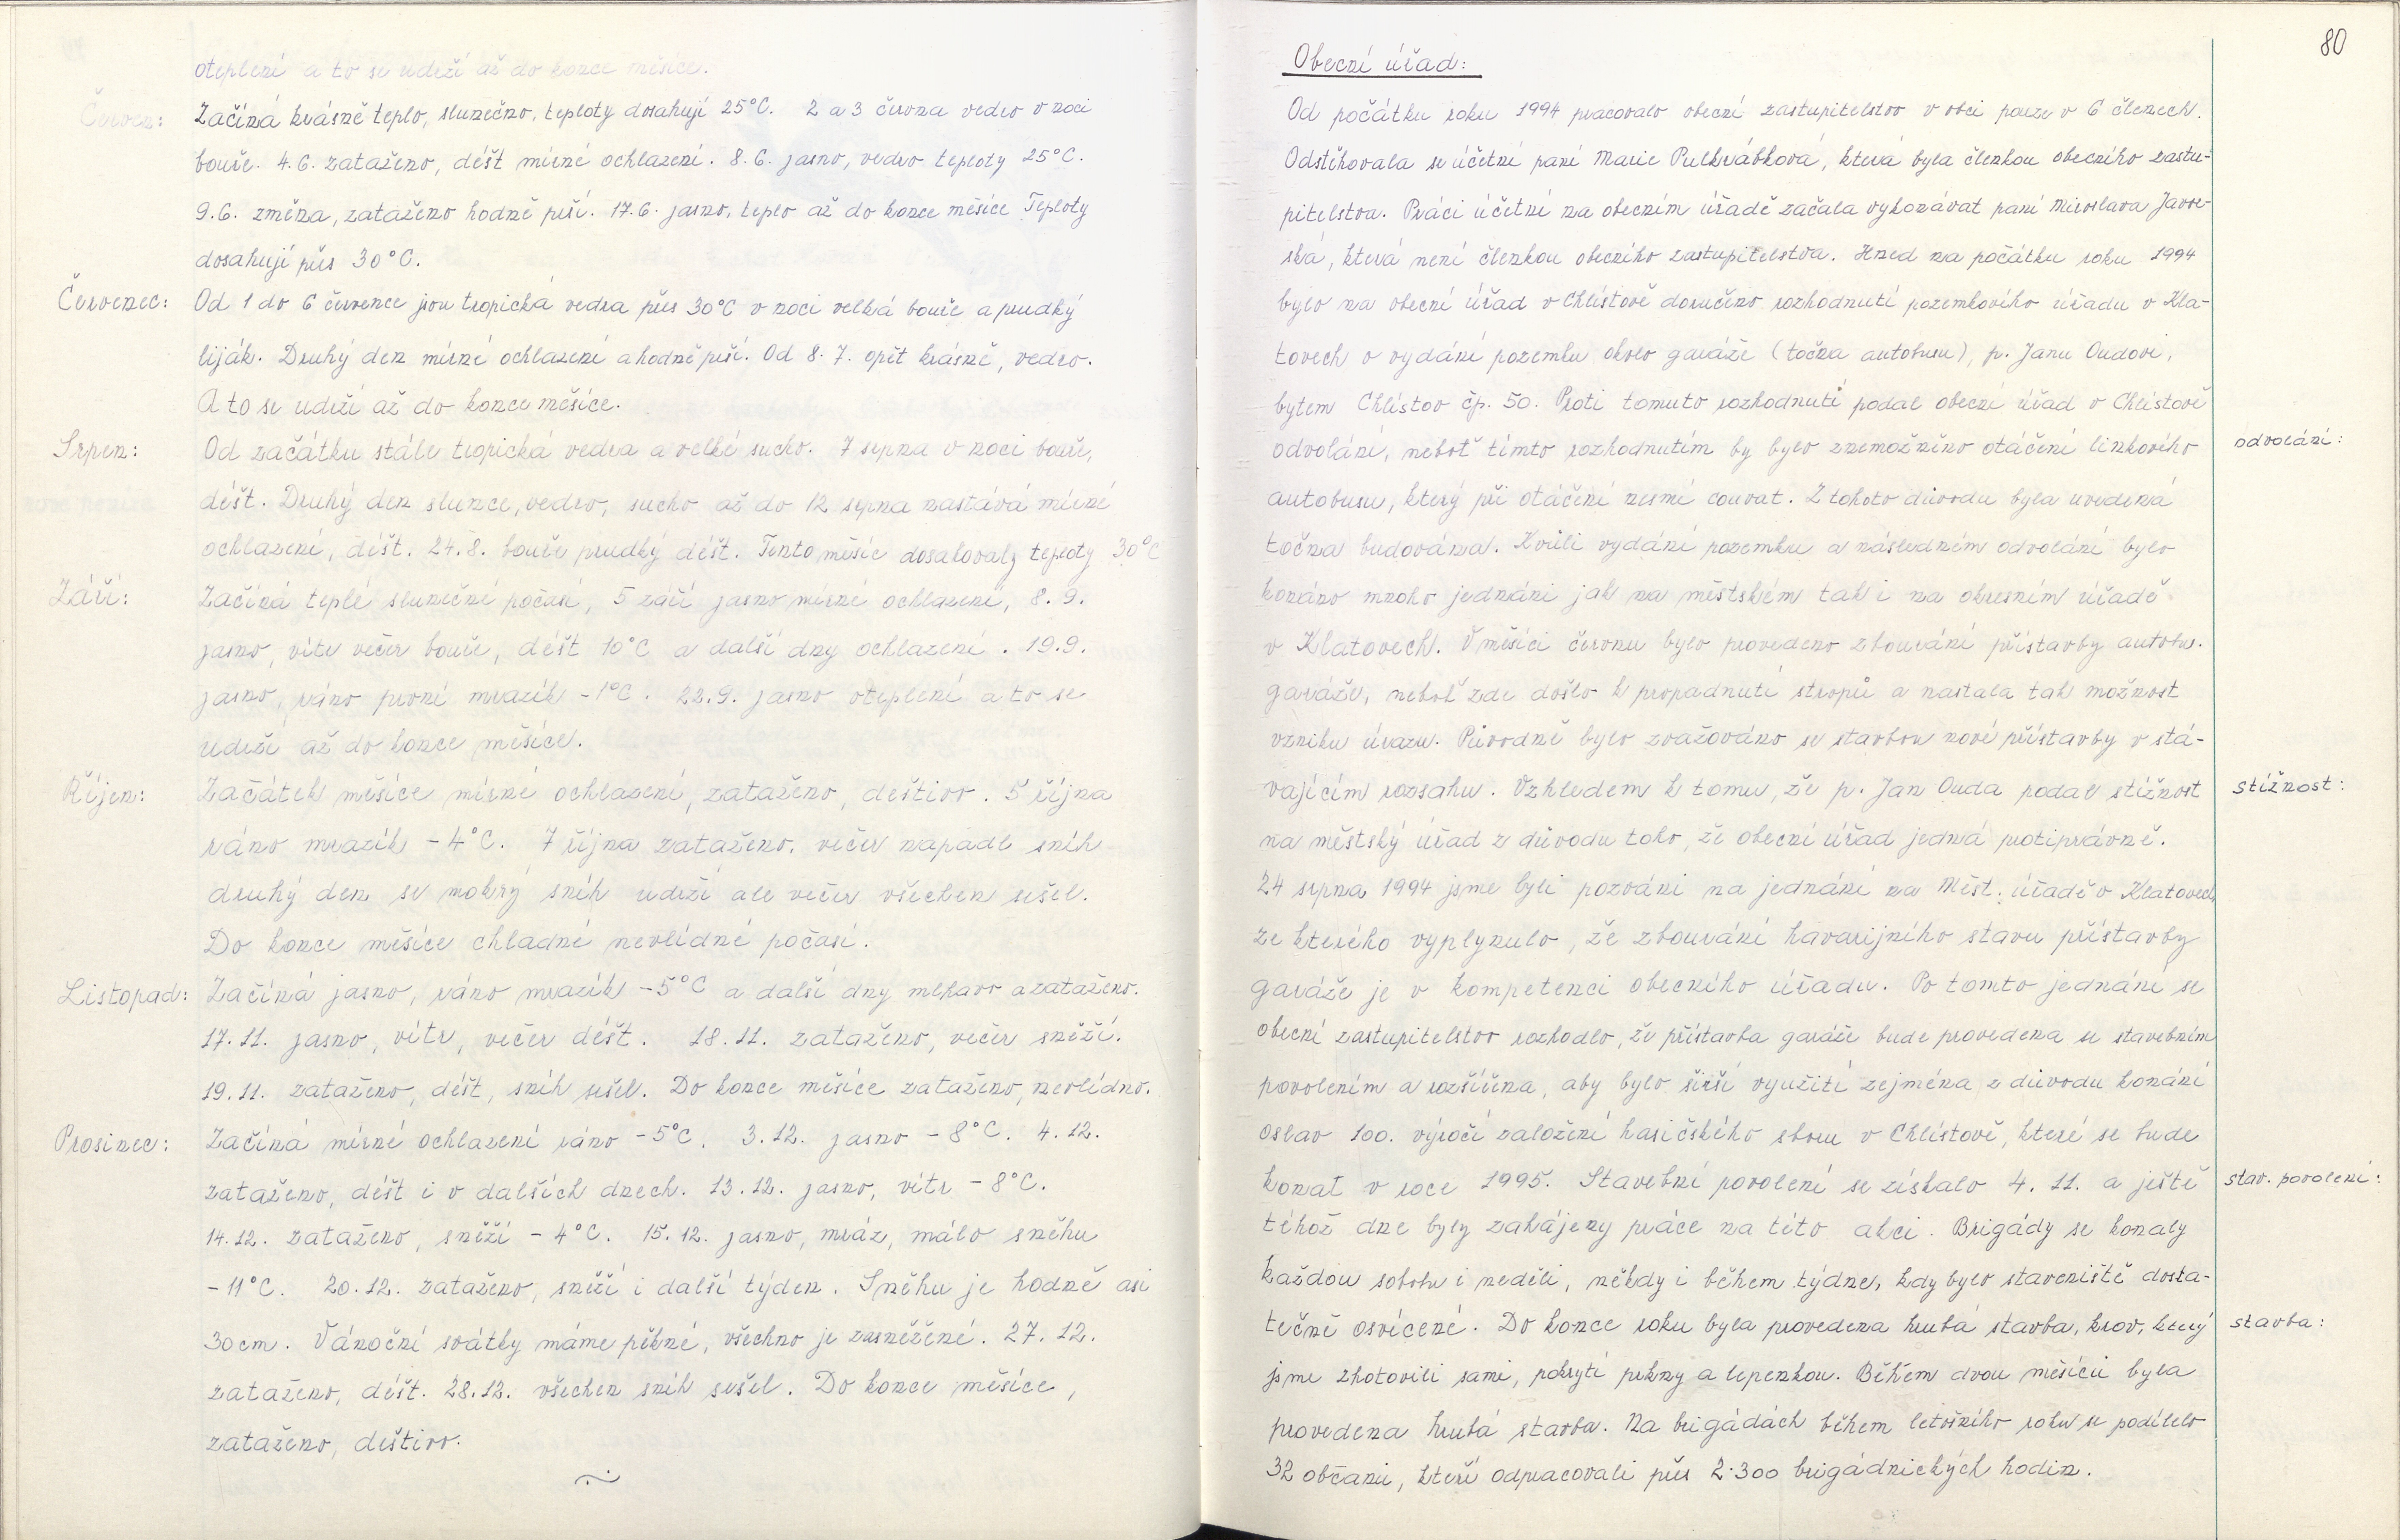 oteplení a to se udrží až do konce měsíce.
Červen: Začíná krásně teplo, slunečno, teploty dosahují 25°C. 2 a 3 června vedro v noci
bouře. 4.6. zataženo, déšt mírné ochlazení. 8.6. jasno, vedro teploty 25°C.
9.6. změna, zataženo hodně prší. 17.6. jasno, teplo až do konce měsíce Teploty
dosahují přes 30°C.
Červenec: Od 1 do 6 července jsou tropická vedra přes 30°C v noci velká bouře a prudký
liják. Druhý den mírné ochlazení a hodně prší. Od 8.7. opět krásně, vedro.
A to se udrží až do konce měsíce.
Srpen: Od začátku stále tropická vedra a velké sucho. 7 srpna v noci bouře,
déšt. Druhý den slunce, vedro, sucho až do 12 srpna nastává mírné
ochlazení, déšt. 24.8. bouře prudký déšt. Tento měsíc dosahovaly teploty 30°C
Září: Začíná teplé sluneční počasí, 5 září jasno mírné ochlazení, 8.9.
jasno, vítr večer bouře, déšt 10°C a další dny ochlazení. 19.9.
jasno, ráno první mrazík -1°C. 22.9. jasno oteplení a to se
udrží až do konce měsíce.
Říjen: Začátek měsíce mírné ochlazení, zataženo, deštivo. 5 října
ráno mrazík -4°C. 7 října zataženo, večer napadl sníh
druhý den se mokrý sníh udrží ale večer všechen sešel.
Do konce měsíce chladné nevlídné počasí.
Listopad: Začíná jasno, ráno mrazík -5°C a další dny mlhavo a zataženo.
17.11. jasno, vítr, večer déšt. 18.11. zataženo, večer sněží.
19.11. zataženo, déšt, sníh sešel. Do konce měsíce zataženo, nevlídno.
Prosinec: Začíná mírné ochlazení ráno -5°C. 3.12. jasno -8°C. 4.12.
zataženo, déšt i v dalších dnech. 13.12. jasno, vítr -8°C.
14.12. zataženo, sněží -4°C. 15.12. jasno, mráz, málo sněhu
-11°C. 20.12. zataženo, sněží i další týden. Sněhu je hodně asi
30cm. Vánoční svátky máme pěkné, všechno je zasněžené. 27.12.
zataženo, déšt. 28.12. všechen sníh sešel. Do konce měsíce,
zataženo, deštivo.
80
Obecní úřad:
Od počátku roku 1994 pracovalo obecní zastupitelstvo v obci pouze v 6 členech.
Odstěhovala se účetní paní Marie Pulkrábková, která byla členkou obecního zastu-
pitelstva. Práci účetní na obecním úřadě začala vykonávat paní Miroslava Javor-
ská, která není členkou obecního zastupitelstva. Hned na počátku roku 1994
bylo na obecní úřad v Chlístově doručeno rozhodnutí pozemkového úřadu v Kla-
tovech o vydání pozemku okolo garáže (točna autobusu), p. Janu Oudovi,
bytem Chlístov čp. 50. Proti tomuto rozhodnutí podal obecní úřad v Chlístově
odvolání, neboť tímto rozhodnutím by bylo znemožněno otáčení linkového odvolání:
autobusu, který při otáčení nesmí couvat. Z tohoto důvodu byla uvedená
točna budována. Kvůli vydání pozemku a následném odvolání bylo
konáno mnoho jednání jak na městském tak i na okresním úřadě
v Klatovech. V měsíci červnu bylo provedeno zbourání přístavby autobu.
garáže, neboť zde došlo k propadnutí stropů a nastala tak možnost
vzniku úrazu. Původně bylo zvažováno se stavbou nové přístavby v stá-
vajícím rozsahu. Vzhledem k tomu, že p. Jan Ouda podal stížnost stížnost:
na městský úřad z důvodu toho, že obecní úřad jedná protiprávně.
24 srpna 1994 jsme byli pozváni na jednání na Měst. úřadě v Klatovech
ze kterého vyplynulo, že zbourání havarijního stavu přístavby
garáže je v kompetenci obecního úřadu. Po tomto jednání se
obecní zastupitelstvo rozhodlo, že přístavba garáže bude provedena se stavebním
povolením a rozšířena, aby bylo širší využití zejména z důvodu konání
oslav 100. výročí založení hasičského sboru v Chlístově, které se bude
konat v roce 1995. Stavební povolení se získalo 4. 11. a ještě stav. povolení:
téhož dne byly zahájeny práce na této akci. Brigády se konaly
každou sobotu i neděli, někdy i během týdne, kdy bylo staveniště dosta-
tečně osvícené. Do konce roku byla provedena hrubá stavba, krov, který stavba:
jsme zhotovili sami, pokrytí prkny a lepenkou. Během dvou měsíců byla
provedena hrubá stavba. Na brigádách během letošního roku se podílelo
32 občanů, kteří odpracovali přes 2.300 brigádnických hodin.